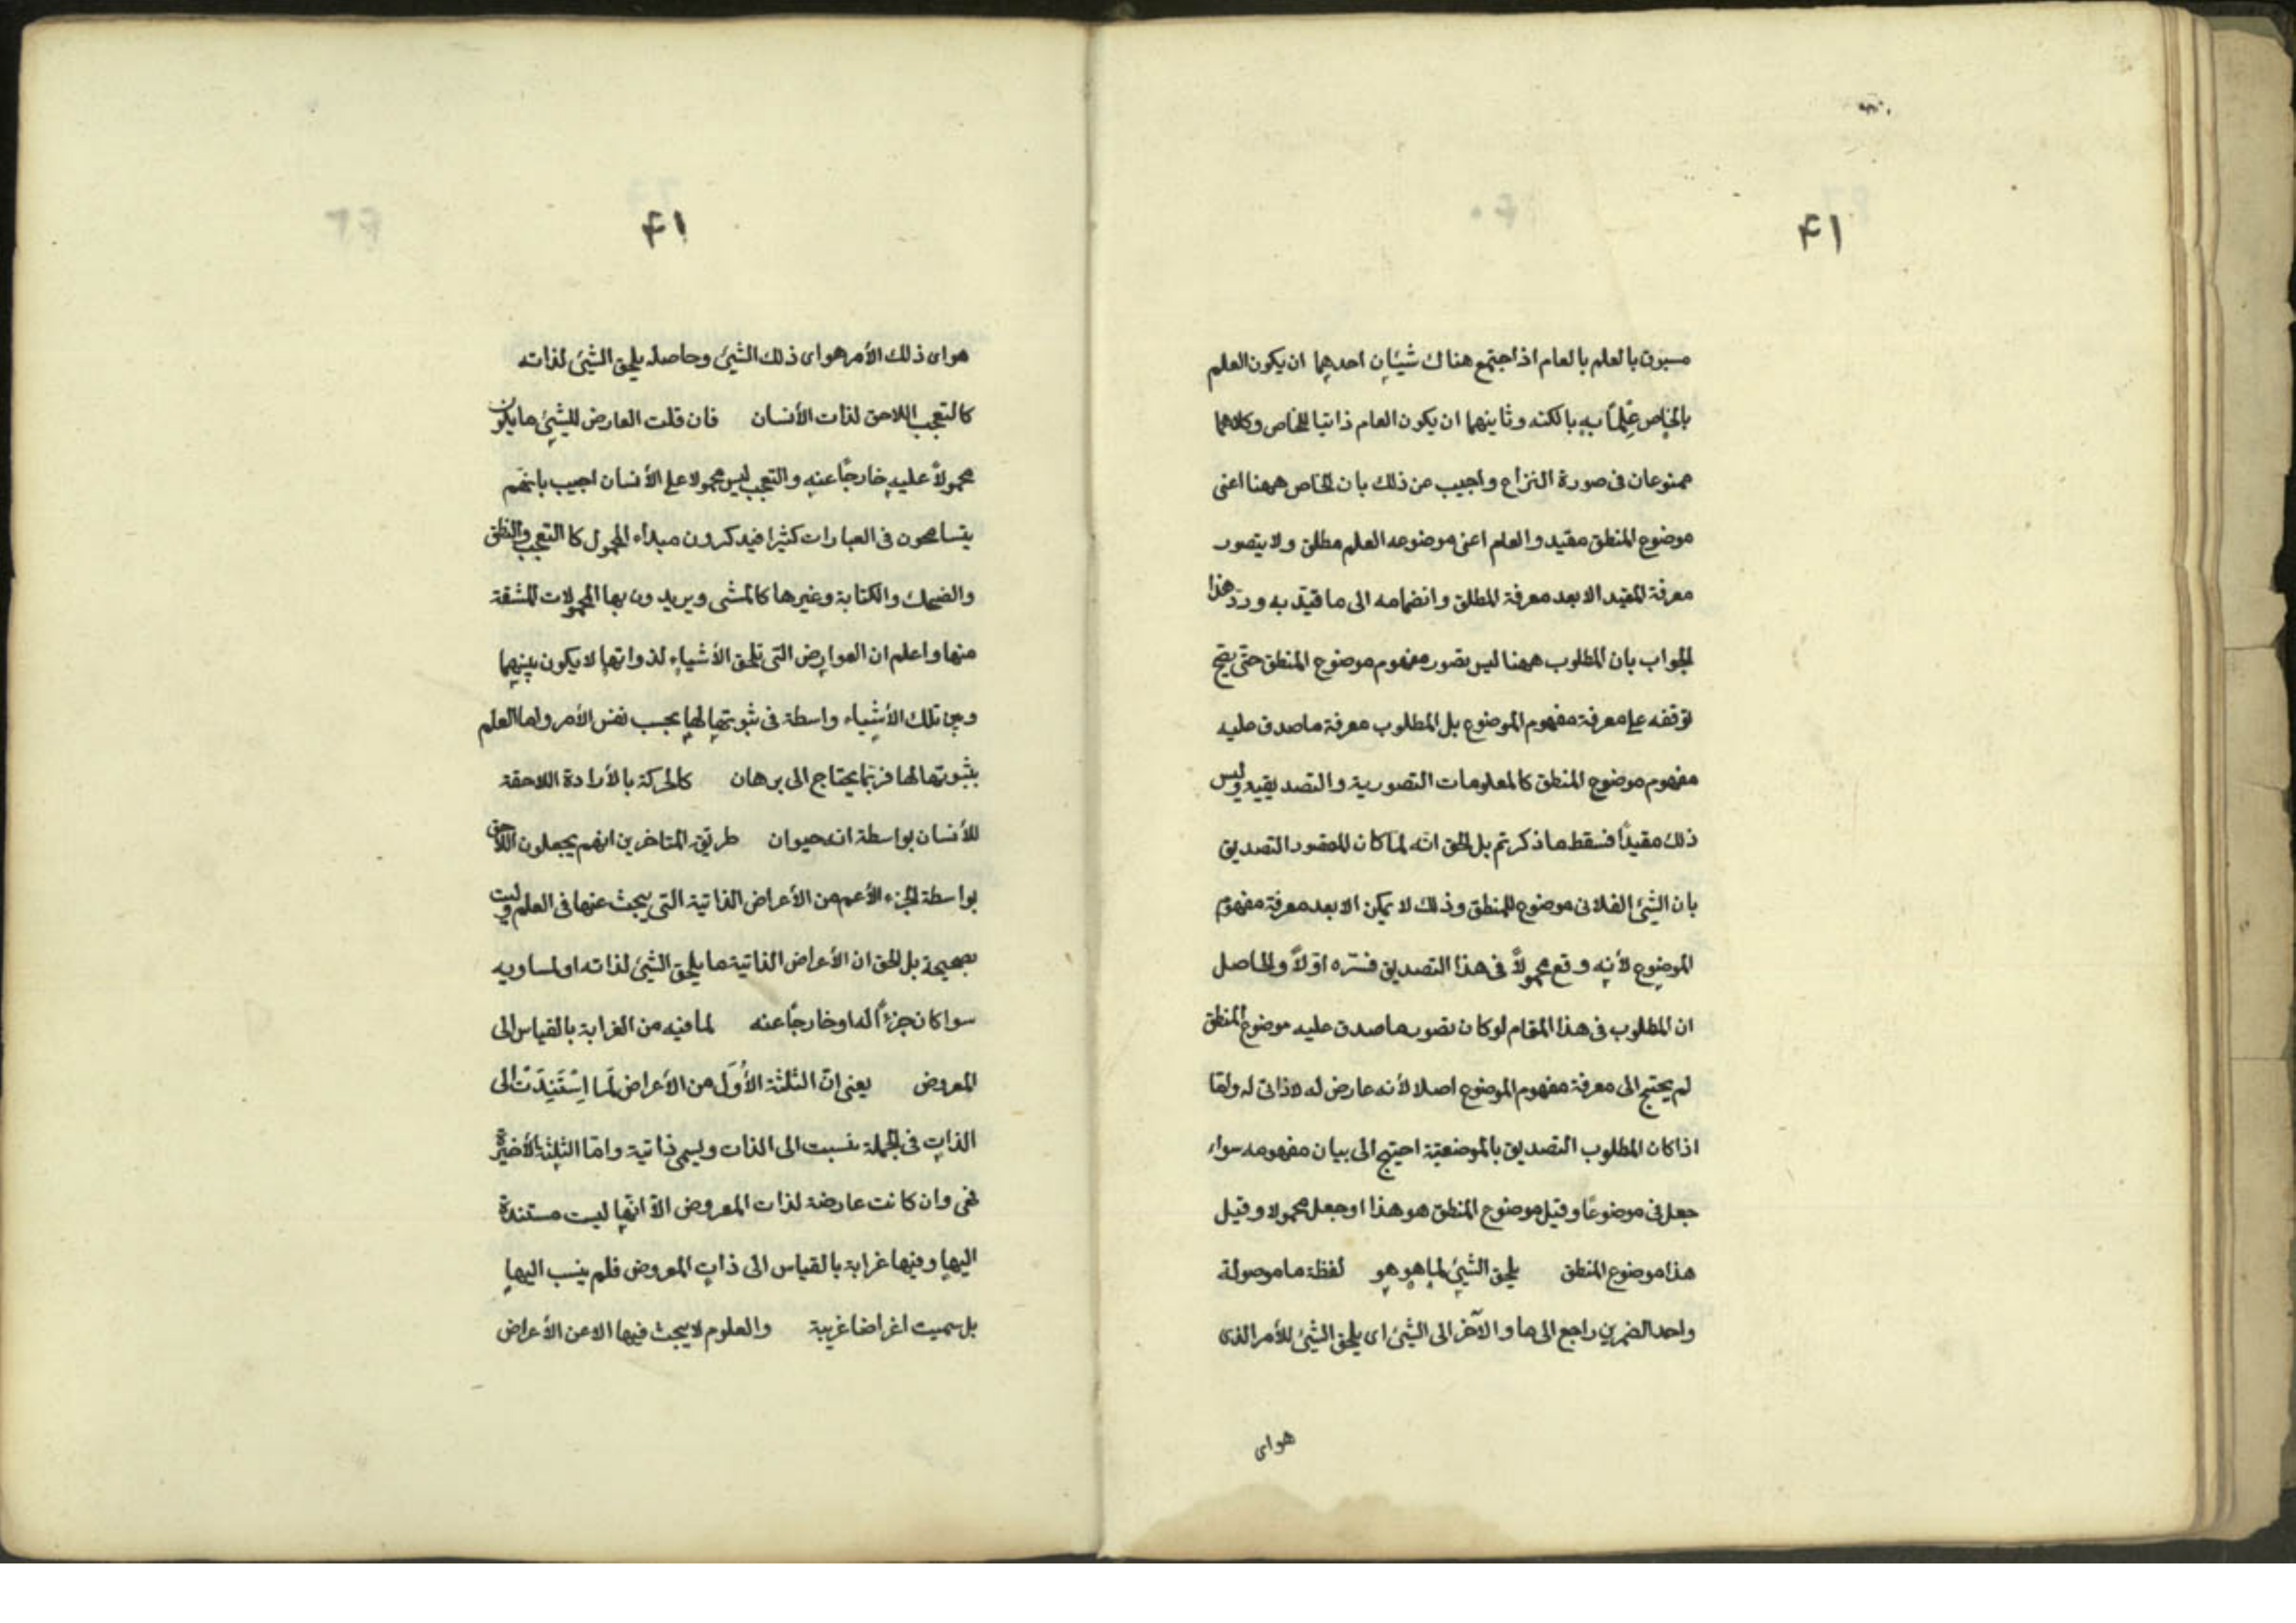 ۴۱
مسبوق بالعلم بالعام اذا اجتمع هناك شيئان احدهما ان يكون العلم
بالخاص علماً به بالكنه وثانيهما ان يكون العام ذاتيا للخاص وكلاهما
ممنوعان فى صورة النزاع واجيب عن ذلك بان الخاص ههنا اعنى
موضوع المنطق مقيد والعام اعنى موضوعه العلم مطلق ولا يتصور
معرفة المقيد الا بعد معرفة المطلق وانضمامه الى ما قيّد به وردّ هذا
الجواب بان المطلوب ههنا ليس تصور مفهوم موضوع المنطق حتى يصح
توقفه على معرفة مفهوم الموضوع بل المطلوب معرفة ما صدق عليه
مفهوم موضوع المنطق كالمعلومات التصورية والتصديقية وليس
ذلك مقيداً فسقط ما ذكرتم بل الحق انّه لمّا كان المقصود التصديق
بان الشيئ الفلانى موضوع المنطق وذلك لا يمكن الا بعد معرفة مفهوم
الموضوع لأنه وقع محمولاً فى هذا التصديق فسّره اوّلاً والحاصل
ان المطلوب فى هذا المقام لو كان تصور ما صدق عليه موضوع المنطق
لم يحتج الى معرفة مفهوم الموضوع اصلا لأنه عارض له لا ذاتى له ولمّا
اذا كان المطلوب التصديق بالموضعيّة احتيج الى بيان مفهومه سواء
جعل فى موضوعًا وقيل موضوع المنطق هو هذا او جعل محمولا وقيل
هذا موضوع المنطق يلحق الشيئ لما هو هو لفظة ما موصولة
واحد الضمرين راجع الى ما والآخر الى الشيئ اى يلحق الشيئ للأمر الذى
هو اى
۴۱
هو اى ذلك الأمر هو اى ذلك الشيئ وحاصله يلحق الشيئ لذاته
كالتعجب اللاحق لذات الأنسان فان قلت العارض للشيئ ما يكون
محمولاً عليه خارجًا عنه والتعجب ليس محمولا على الأنسان اجيب بانهم
يتسامحون فى العبارات كثيرا فيذكرون مبداء المحمول كا التعجب والنطق
والضحك والكتابة وغيرها كالمشى ويريدون بها المحمولات المشقة
منها واعلم ان العوارض التى تلحق الأشياء لذواتها لا يكون بينهما
وبين تلك الأشياء واسطة فى ثبوتها لها بحسب نفس الأمر واما العلم
بثبوتها لها فربّما يحتاج الى برهان كالحركة بالأرادة اللاحقة
للأنسان بواسطة انه حيوان طريق المتاخرين انهم يجعلون اللاحق
بواسطة الجزء الأعم من الأعراض الذاتية التى يبحث عنها فى العلم وليت
بصحيحة بل الحق ان الأعراض الذاتية ما يلحق الشيئ لذاته او لمساويه
سوا كان جزءاً له او خارجًا عنه لما فيه من الغرابة بالقياس الى
المعروض يعنى انّ الثلثة الأُوَل من الأعراض لمّا اِسْتَنِدَتْ الى
الذات فى الجملة نسبت الى الذات ويسمى ذاتية وامّا الثلثة الأخيرة
فهى وان كانت عارضة لذات المعروض الّا انّها ليست مستندة
اليها وفيها غرابة بالقياس الى ذات المعروض فلم ينسب اليها
بل سميت اغراضا غريبة والعلوم لا يبحث فيها الا عن الأعراض